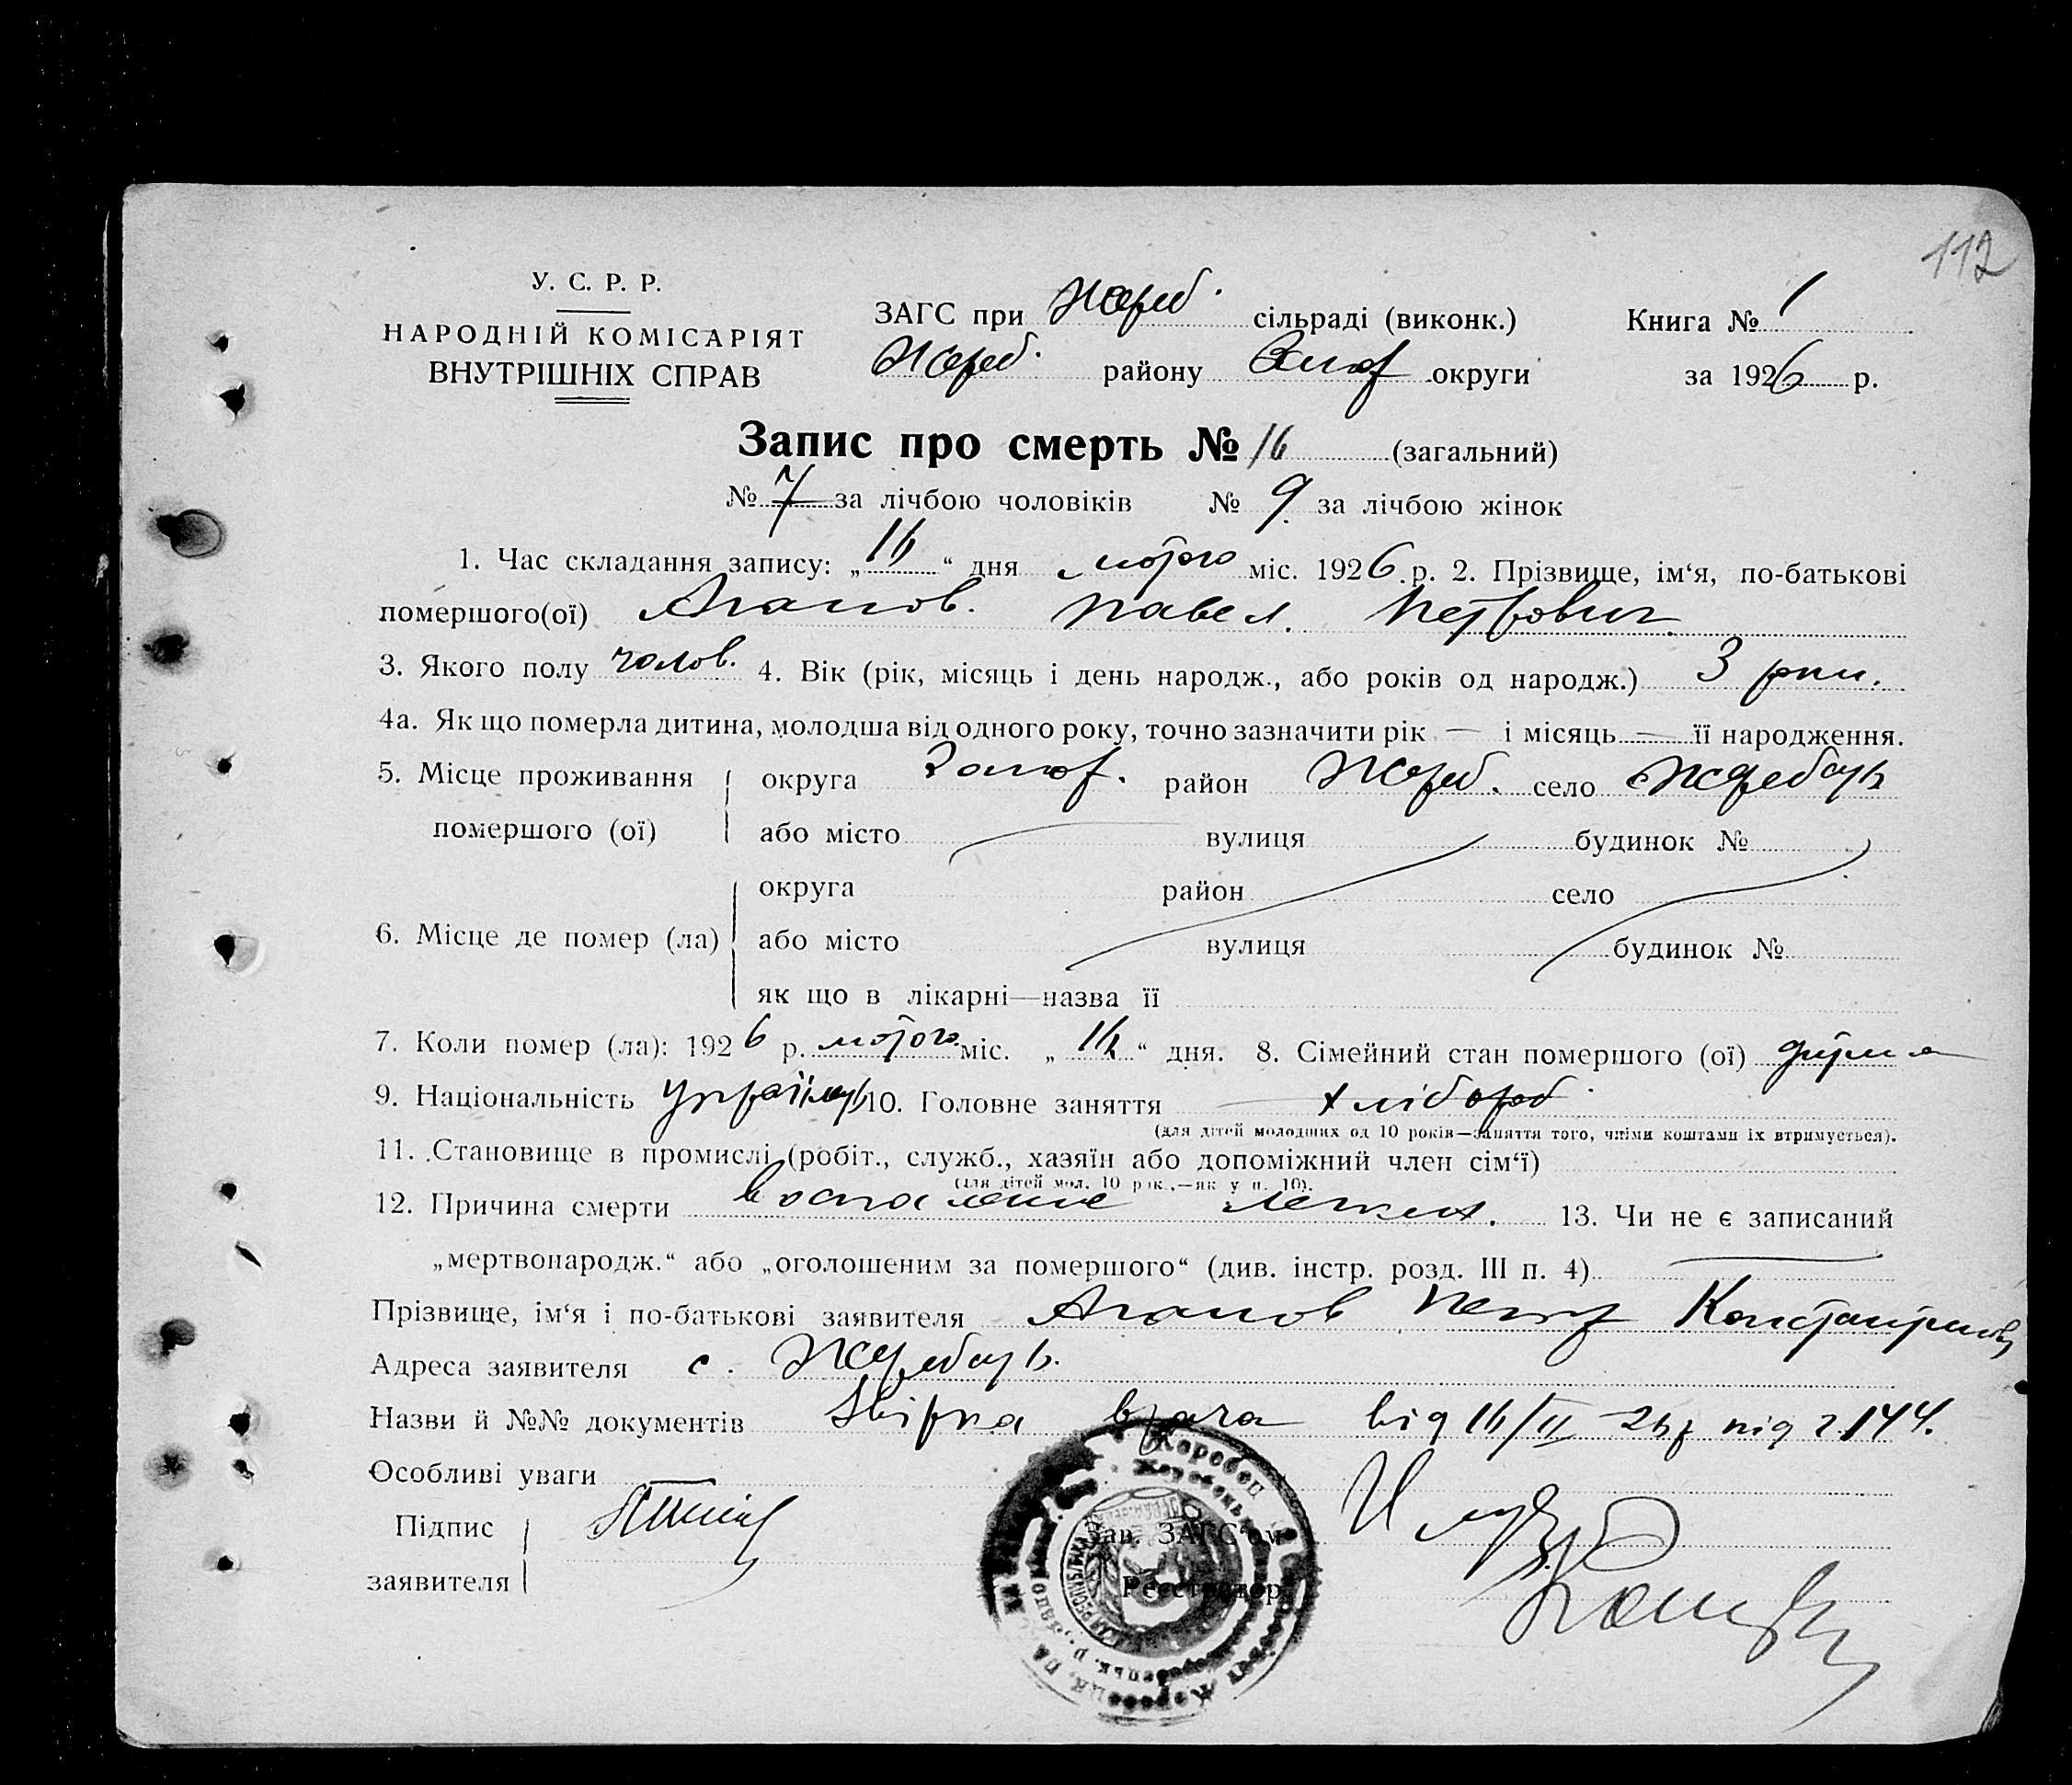 112
У. С. Р. Р.
НАРОДНІЙ КОМІСАРІЯТ
ВНУТРІШНІХ СПРАВ
ЗАГС при Жереб. сільраді (виконк.)
Жереб. району Запор округи
Книга № 1
за 1926 р.
Запис про смерть № 16 (загальний)
№ 7 за лічбою чоловіків № 9 за лічбою жінок
1. Час складання запису: „16“ дня лютого міс. 1926 р. 2. Прізвище, ім‘я, по-батькові
помершого(ої) Агапов. Павел. Петрович
3. Якого полу чолов. 4. Вік (рік, місяць і день народж., або років од народж.) 3 роки.
4а. Як що померла дитина, молодша від одного року, точно зазначити рік — і місяць — її народження.
5. Місце проживання помершого (ої) округа Запор. район Жереб. село Жеребець
або місто вулиця будинок №
6. Місце де помер (ла) округа район село
або місто вулиця будинок №
як що в лікарні—назва її
7. Коли помер (ла): 1926 р. лютого міс. „ “ дня. 8. Сімейний стан помершого (ої) дитина
9. Національність 10. Головне заняття хлібороб
(для дітей молодших од 10 років—заняття того, чиїми коштами їх втримується).
11. Становище в промислі (робіт., служб., хазяїн або допоміжний член сім‘ї)
(для дітей мол. 10 рік.,—як у п. 10).
12. Причина смерти воспаление легких. 13. Чи не є записаний
„мертвонародж.“ або „оголошеним за помершого“ (див. інстр. розд. III п. 4) —
Прізвище, ім‘я і по-батькові заявителя Агапов Петр Константинов
Адреса заявителя с. Жеребець.
Назви й №№ документів врача від 16/II 26р під ч. 144.
Особливі уваги —
Підпис заявителя
Зав. ЗАГС‘ом
Реєстратор